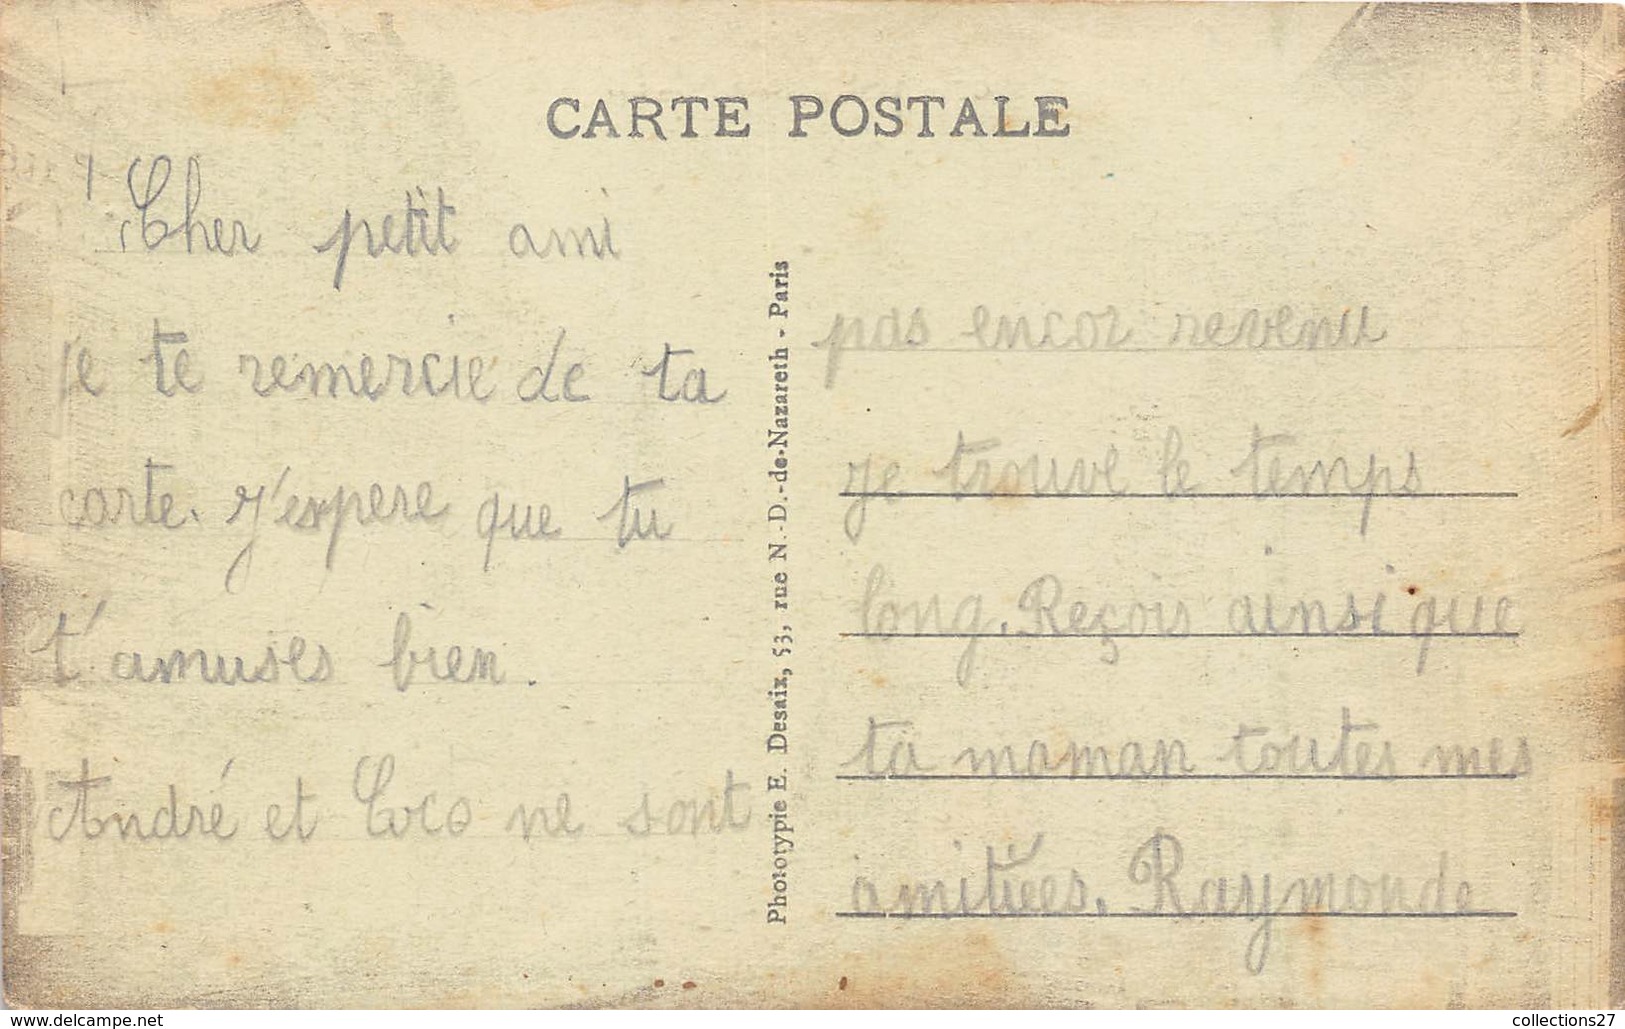 CARTE POSTALE
Cher petit ami
je te remercie de ta
carte. J'espere que tu
t'amuses bien.
André et Coco ne sont
Phototypie E. Desaix, 53, rue N.-D.-de-Nazareth - Paris
pas encor revenu
je trouve le temps
long. Reçois ainsi que
ta maman toutes mes
amitiées. Raymonde
delcampe.net
collections27